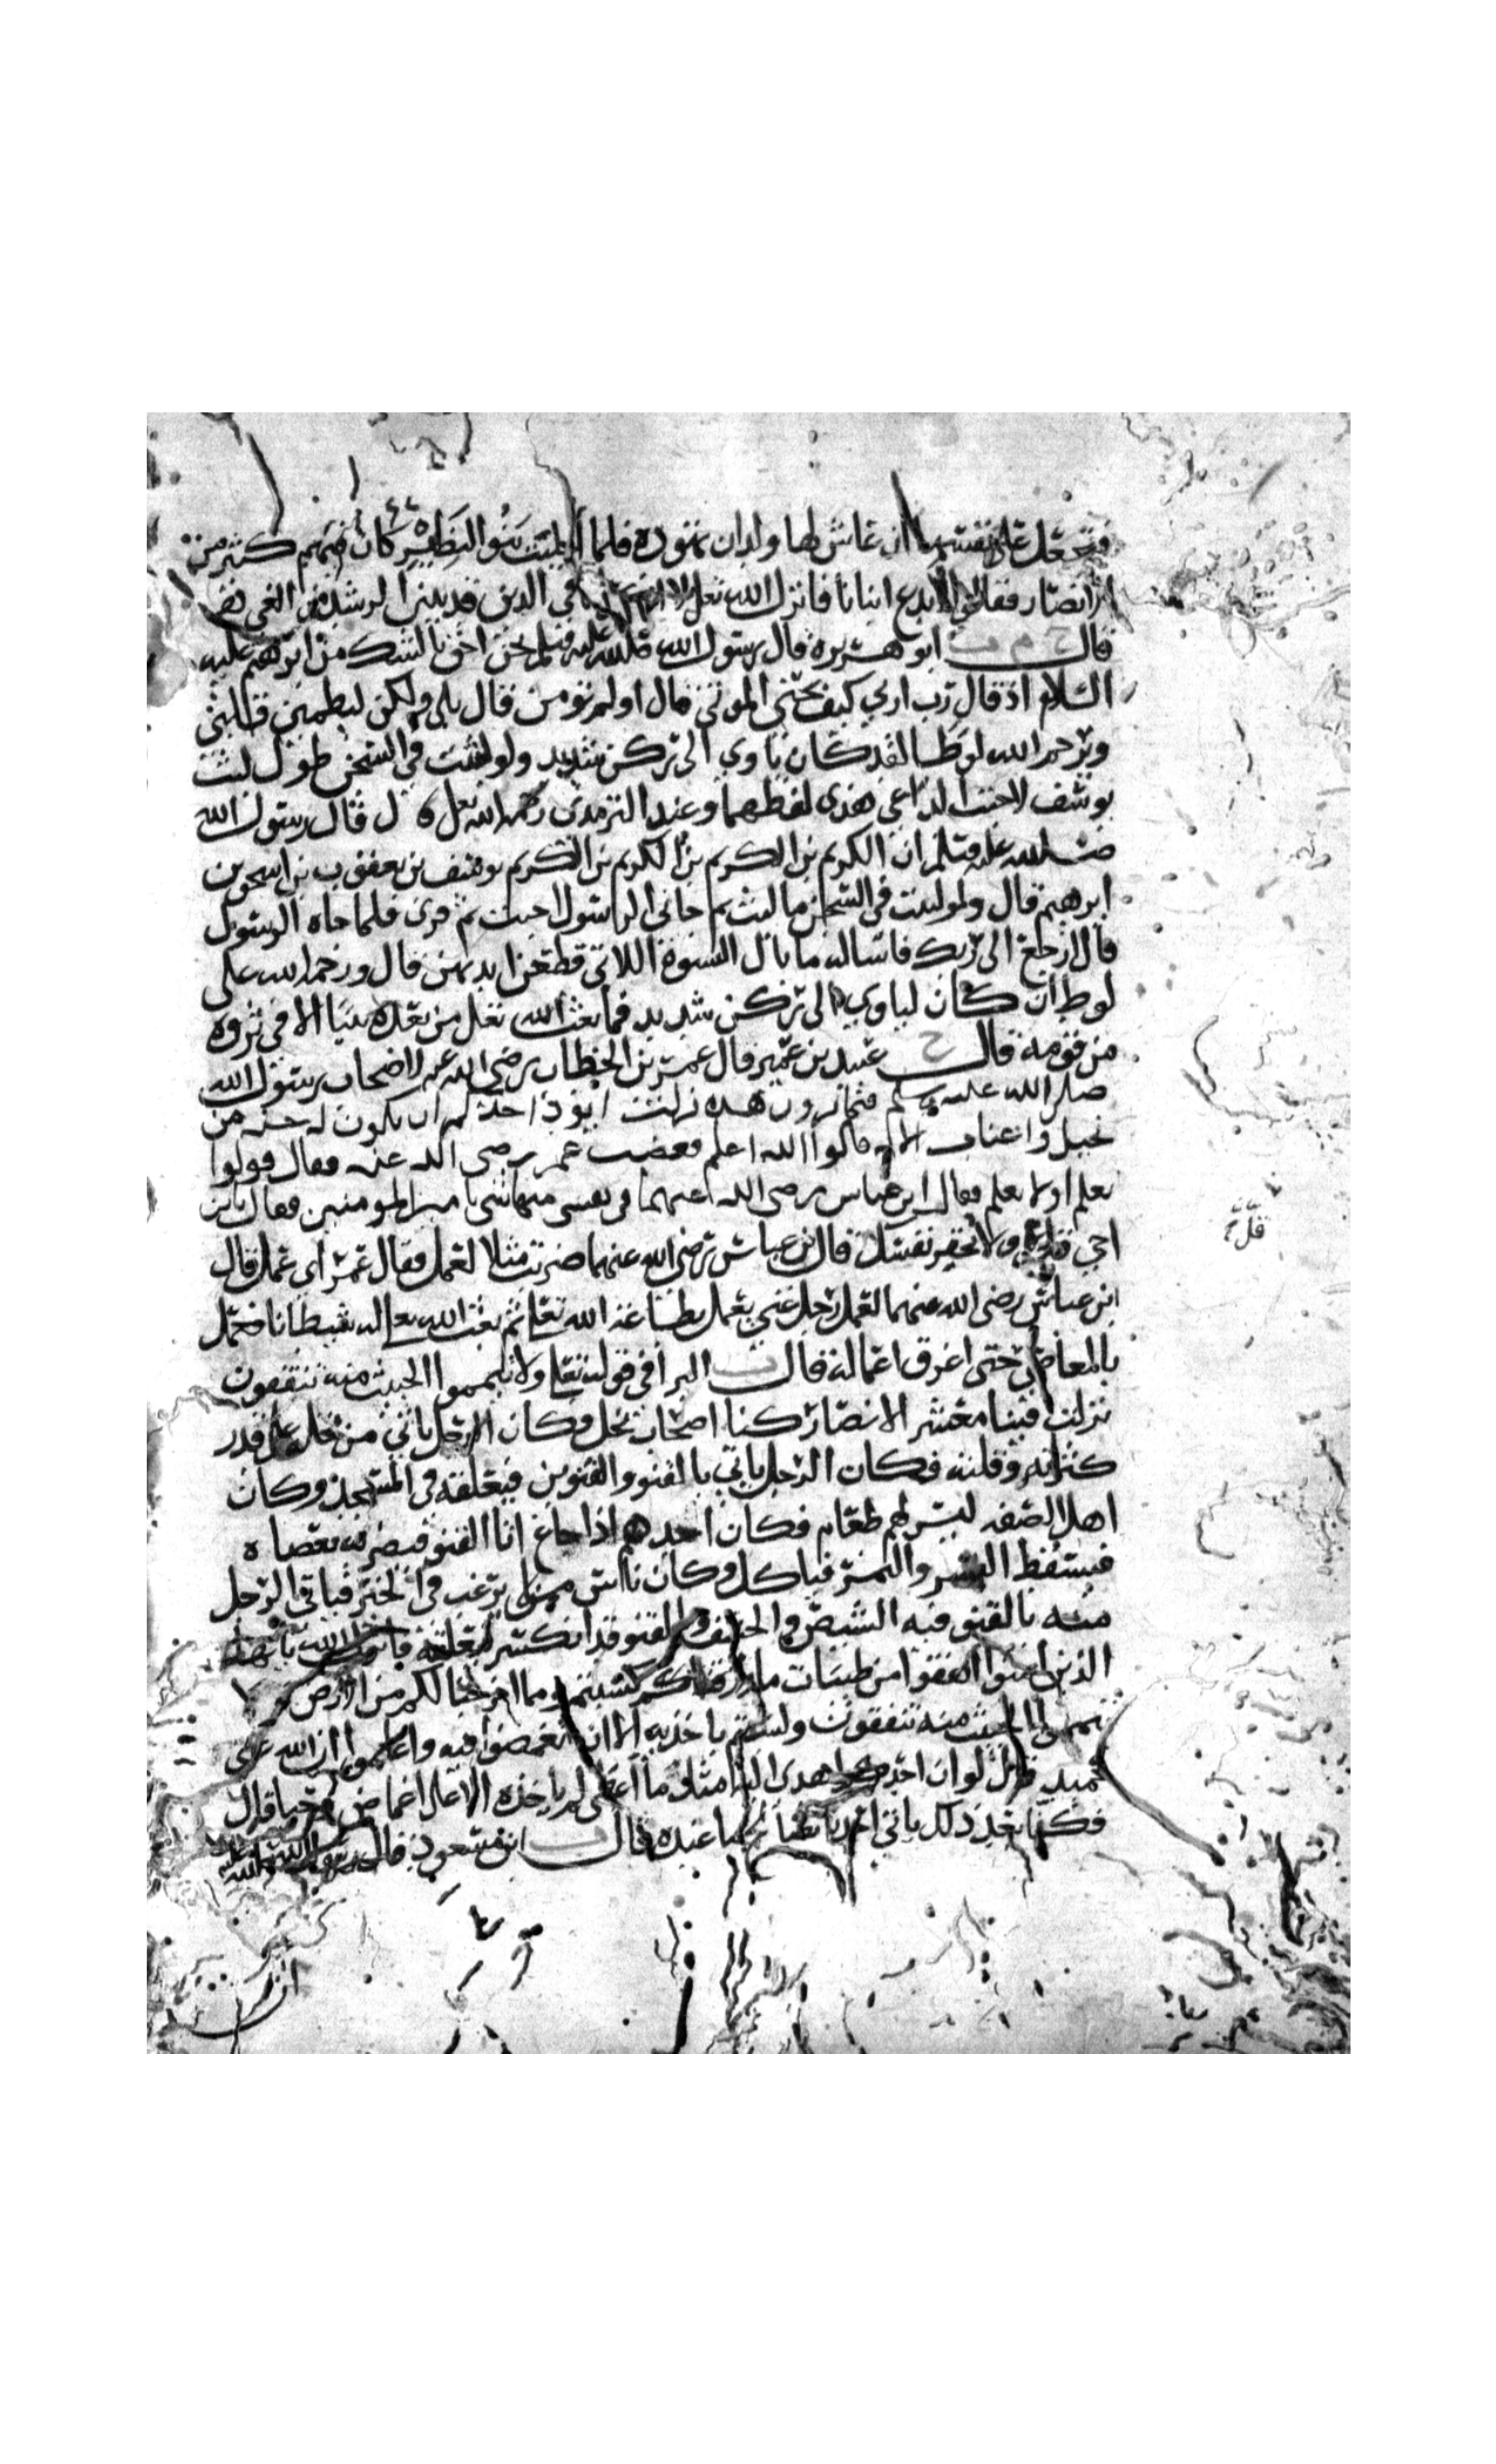 فتجعل على نفسها ان عاش لها ولد ان تهوده فلما اجليت بنو النضير كان فيهم كثير من
الانصار فقالوا لا ندع ابنانا فانزل الله تعلى لا اكراه في الدين قد تبين الرشد من الغي
قال خ م ت ابو هريرة قال رسول الله صلى الله عليه وسلم نحن احق بالشك من ابرهيم عليه
السلام اذ قال رب ارني كيف تحيي الموتى قال اولم تومن قال بلى ولكن ليطمين قلبي
ويرحم الله لوطا لقد كان ياوي الى ركن شديد ولو لبثت في السجن طول لبث
يوسف لاجبت الداعي هذى لفظهما وعند الترمذي رحمه الله تعلى قال رسول الله
صلى الله عليه وسلم ان الكريم بن الكريم بن الكريم بن الكريم يوسف بن يعقوب بن اسحق بن
ابرهيم قال ولو لبثت في السجن ما لبث ثم جاني الرسول اجبت ثم قرى فلما جاه الرسول
قال ارجع الى ربك فاساله ما بال النسوة اللاتي قطعن ايديهن قال ورحمه الله على
لوط ان كان لياوي الى ركن شديد فما بعث الله تعلى من بعده نبيا الا في ثروه
من قومه قال خ عبيد بن عمير قال عمر بن الخطاب رضي الله عنه لاصحاب رسول الله
صلى الله عليه وسلم فيما ترون هذه نزلت ايود احدكم ان يكون له جنه من
نخيل واعناب الايه قالوا الله اعلم فغضب عمر رضي الله عنه فقال قولوا
نعلم او لا نعلم فقال ابن عباس رضي الله عنهما في نفسي منها شي يا امير المومنين فقال يابن
اخي قل ولا تحقر نفسك قال ابن عباس رضي الله عنهما ضربت مثلا لعمل فقال عمر اي عمل قال
ابن عباس رضي الله عنهما لعمل رجل غني يعمل بطاعة الله تعلى ثم بعث الله تعالى له شيطانا فعمل
بالمعاصي حتى اغرق اعماله قال ت البرا في قوله تعلى ولا تيمموا الخبيث منه تنفقون
نزلت فينا معشر الانصار كنا اصحاب نخل وكان الرجل ياتي من نخله على قدر
كثرته وقلته فكان الرجل ياتي بالقنو والقنوين فيعلقه في المسجد وكان
اهل الصفه ليس لهم طعام فكان احدهم اذا جاع اتا القنو فيضربه بعصاه
فيسقط البسر والتمر فياكل وكان ناس ممن لا يرغب في الخير فياتي الرجل
منه بالقنو فيه الشيص والحشف والقنو قد انكسر فيعلقه فانزل الله يا يها
الذين امنوا انفقوا من طيبات ما كسبتم ومما اخرجنا لكم من الارض ولا
تيمموا الخبيث منه تنفقون ولستم باخذيه الا ان تغمضوا فيه واعلموا ان الله غني
حميد قال لو ان احدكم اهدى اليه مثل ما اعطى لم ياخذه الا على اغماض وحيا قال
فكنا بعد ذلك ياتي احدنا بصالح ما عنده قال ت ابن مسعود قال رسول الله صلى الله عليه